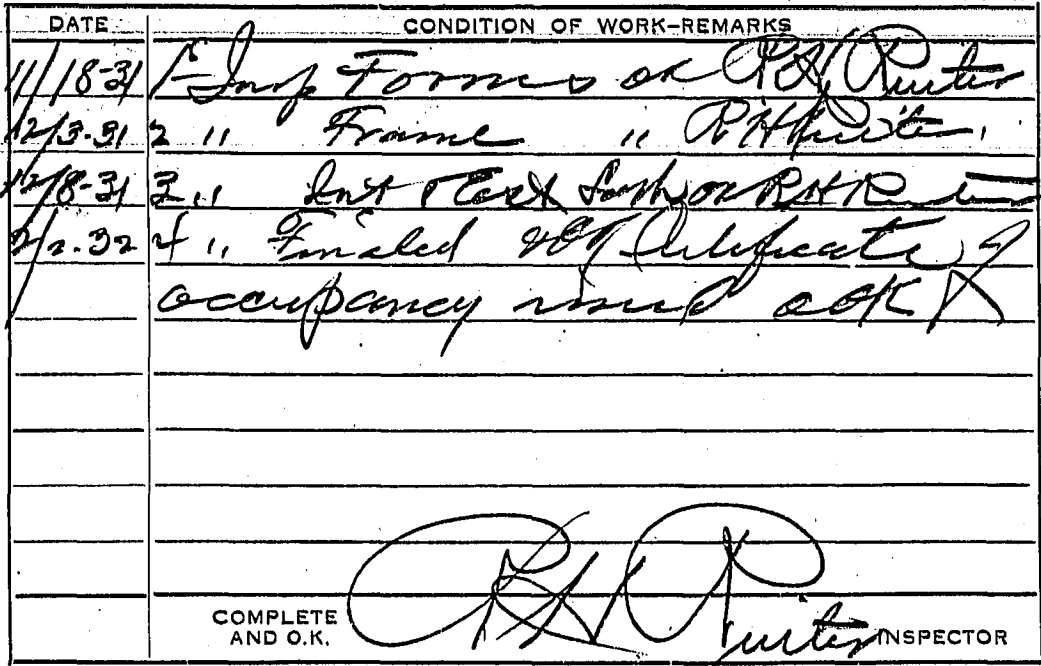 DATE CONDITION OF WORK–REMARKS
11/18-31 1- Insp Forms ok R H Ruiter
12/3-31 2 " Frame " R H Ruiter
12/18-31 3 " Int & Ext Lath ok R H Ruiter
2/2-32 4 " Finaled Certificate of
occupancy issued OK
R H Ruiter
COMPLETE
AND O.K. INSPECTOR